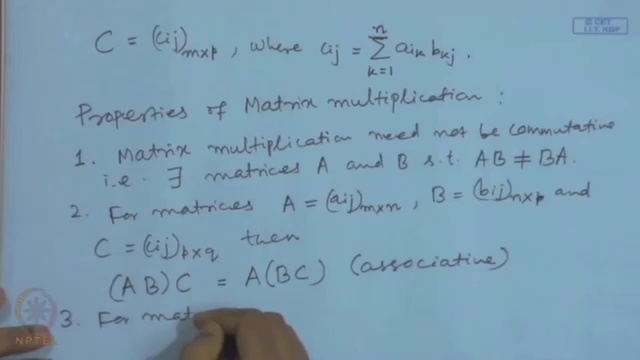 © CET
I.I.T. KGP
C = (cij)m×p, where cij = n∑k=1 aik bkj.
Properties of Matrix multiplication :
1. Matrix multiplication need not be commutative
i.e. ∃ matrices A and B s.t. AB ≠ BA.
2. For matrices A = (aij)m×n, B = (bij)n×p and
C = (cij)p×q then
(AB)C = A(BC) (associative)
3. For mat
NPTEL